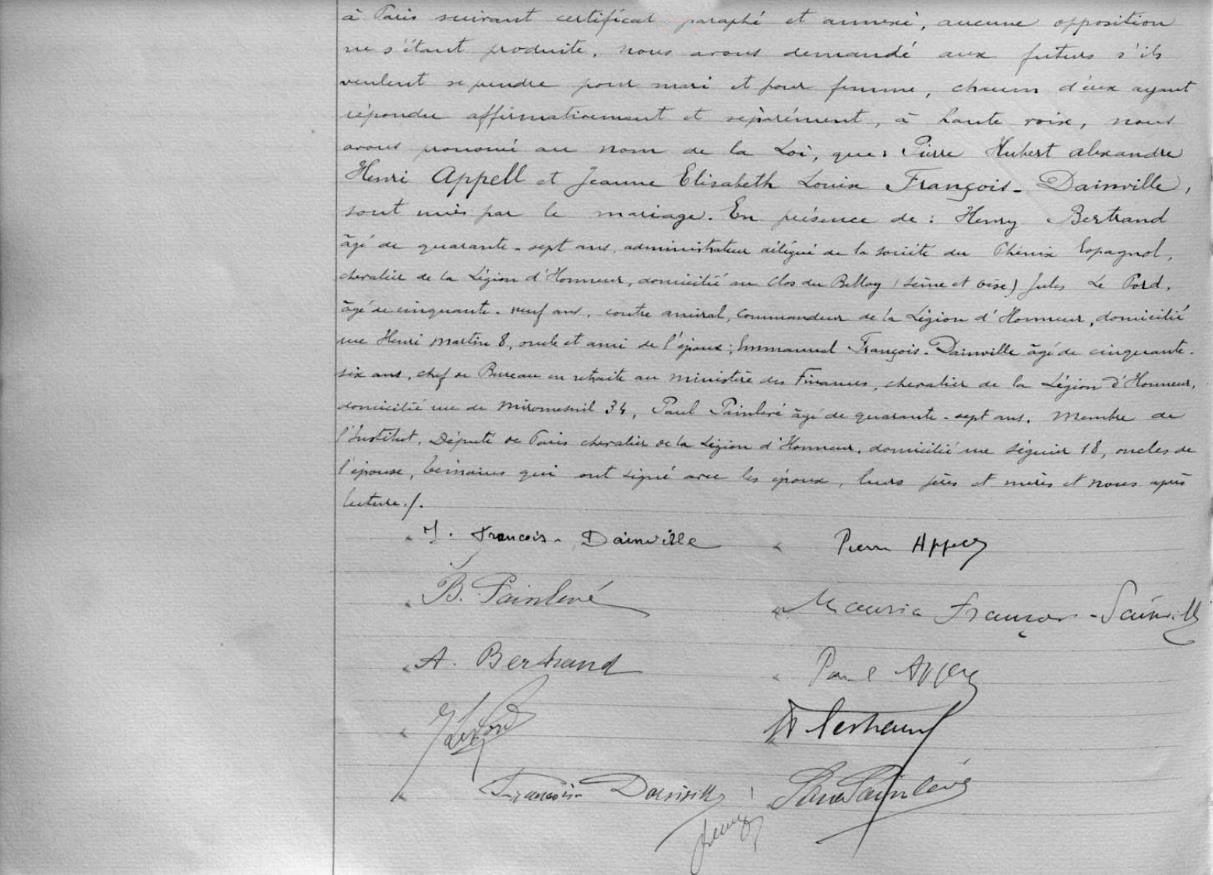 à Paris suivant certificat paraphé et annexé, aucune opposition
ne s'étant produite, nous avons demandé aux futurs s'ils
veulent se prendre pour mari et pour femme, chacun d'eux ayant
répondu affirmativement et séparément, à haute voix, nous
avons prononcé au nom de la Loi, que: Pierre Hubert Alexandre
Henri Appell et Jeanne Elisabeth Louise François-Dainville,
sont unis par le mariage. En présence de: Henry Bertrand
âgé de quarante-sept ans, administrateur délégué de la société du Phénix Espagnol,
chevalier de la Légion d'Honneur, domicilié au Clos du Belloy (Seine et Oise) Jules Le Pord,
âgé de cinquante-neuf ans, contre amiral, commandeur de la Légion d'Honneur, domicilié
rue Henri Martin 8, oncle et ami de l'époux; Emmanuel François-Dainville âgé de cinquante-
six ans, chef de Bureau en retraite au ministère des Finances, chevalier de la Légion d'Honneur,
domicilié rue de Miromesnil 34, Paul Painlevé âgé de quarante-sept ans, Membre de
l'Institut, Député de Paris chevalier de la Légion d'Honneur, domicilié rue Séguier 18, oncles de
l'épouse, témoins qui ont signé avec les époux, leurs pères et mères et nous après
lecture./.
J. François-Dainville Pierre Appell
B. Painlevé Maurice François-Dainville
A. Bertrand Paul Appell
J Le Pord H Bertrand
François Dainville Paul Painlevé